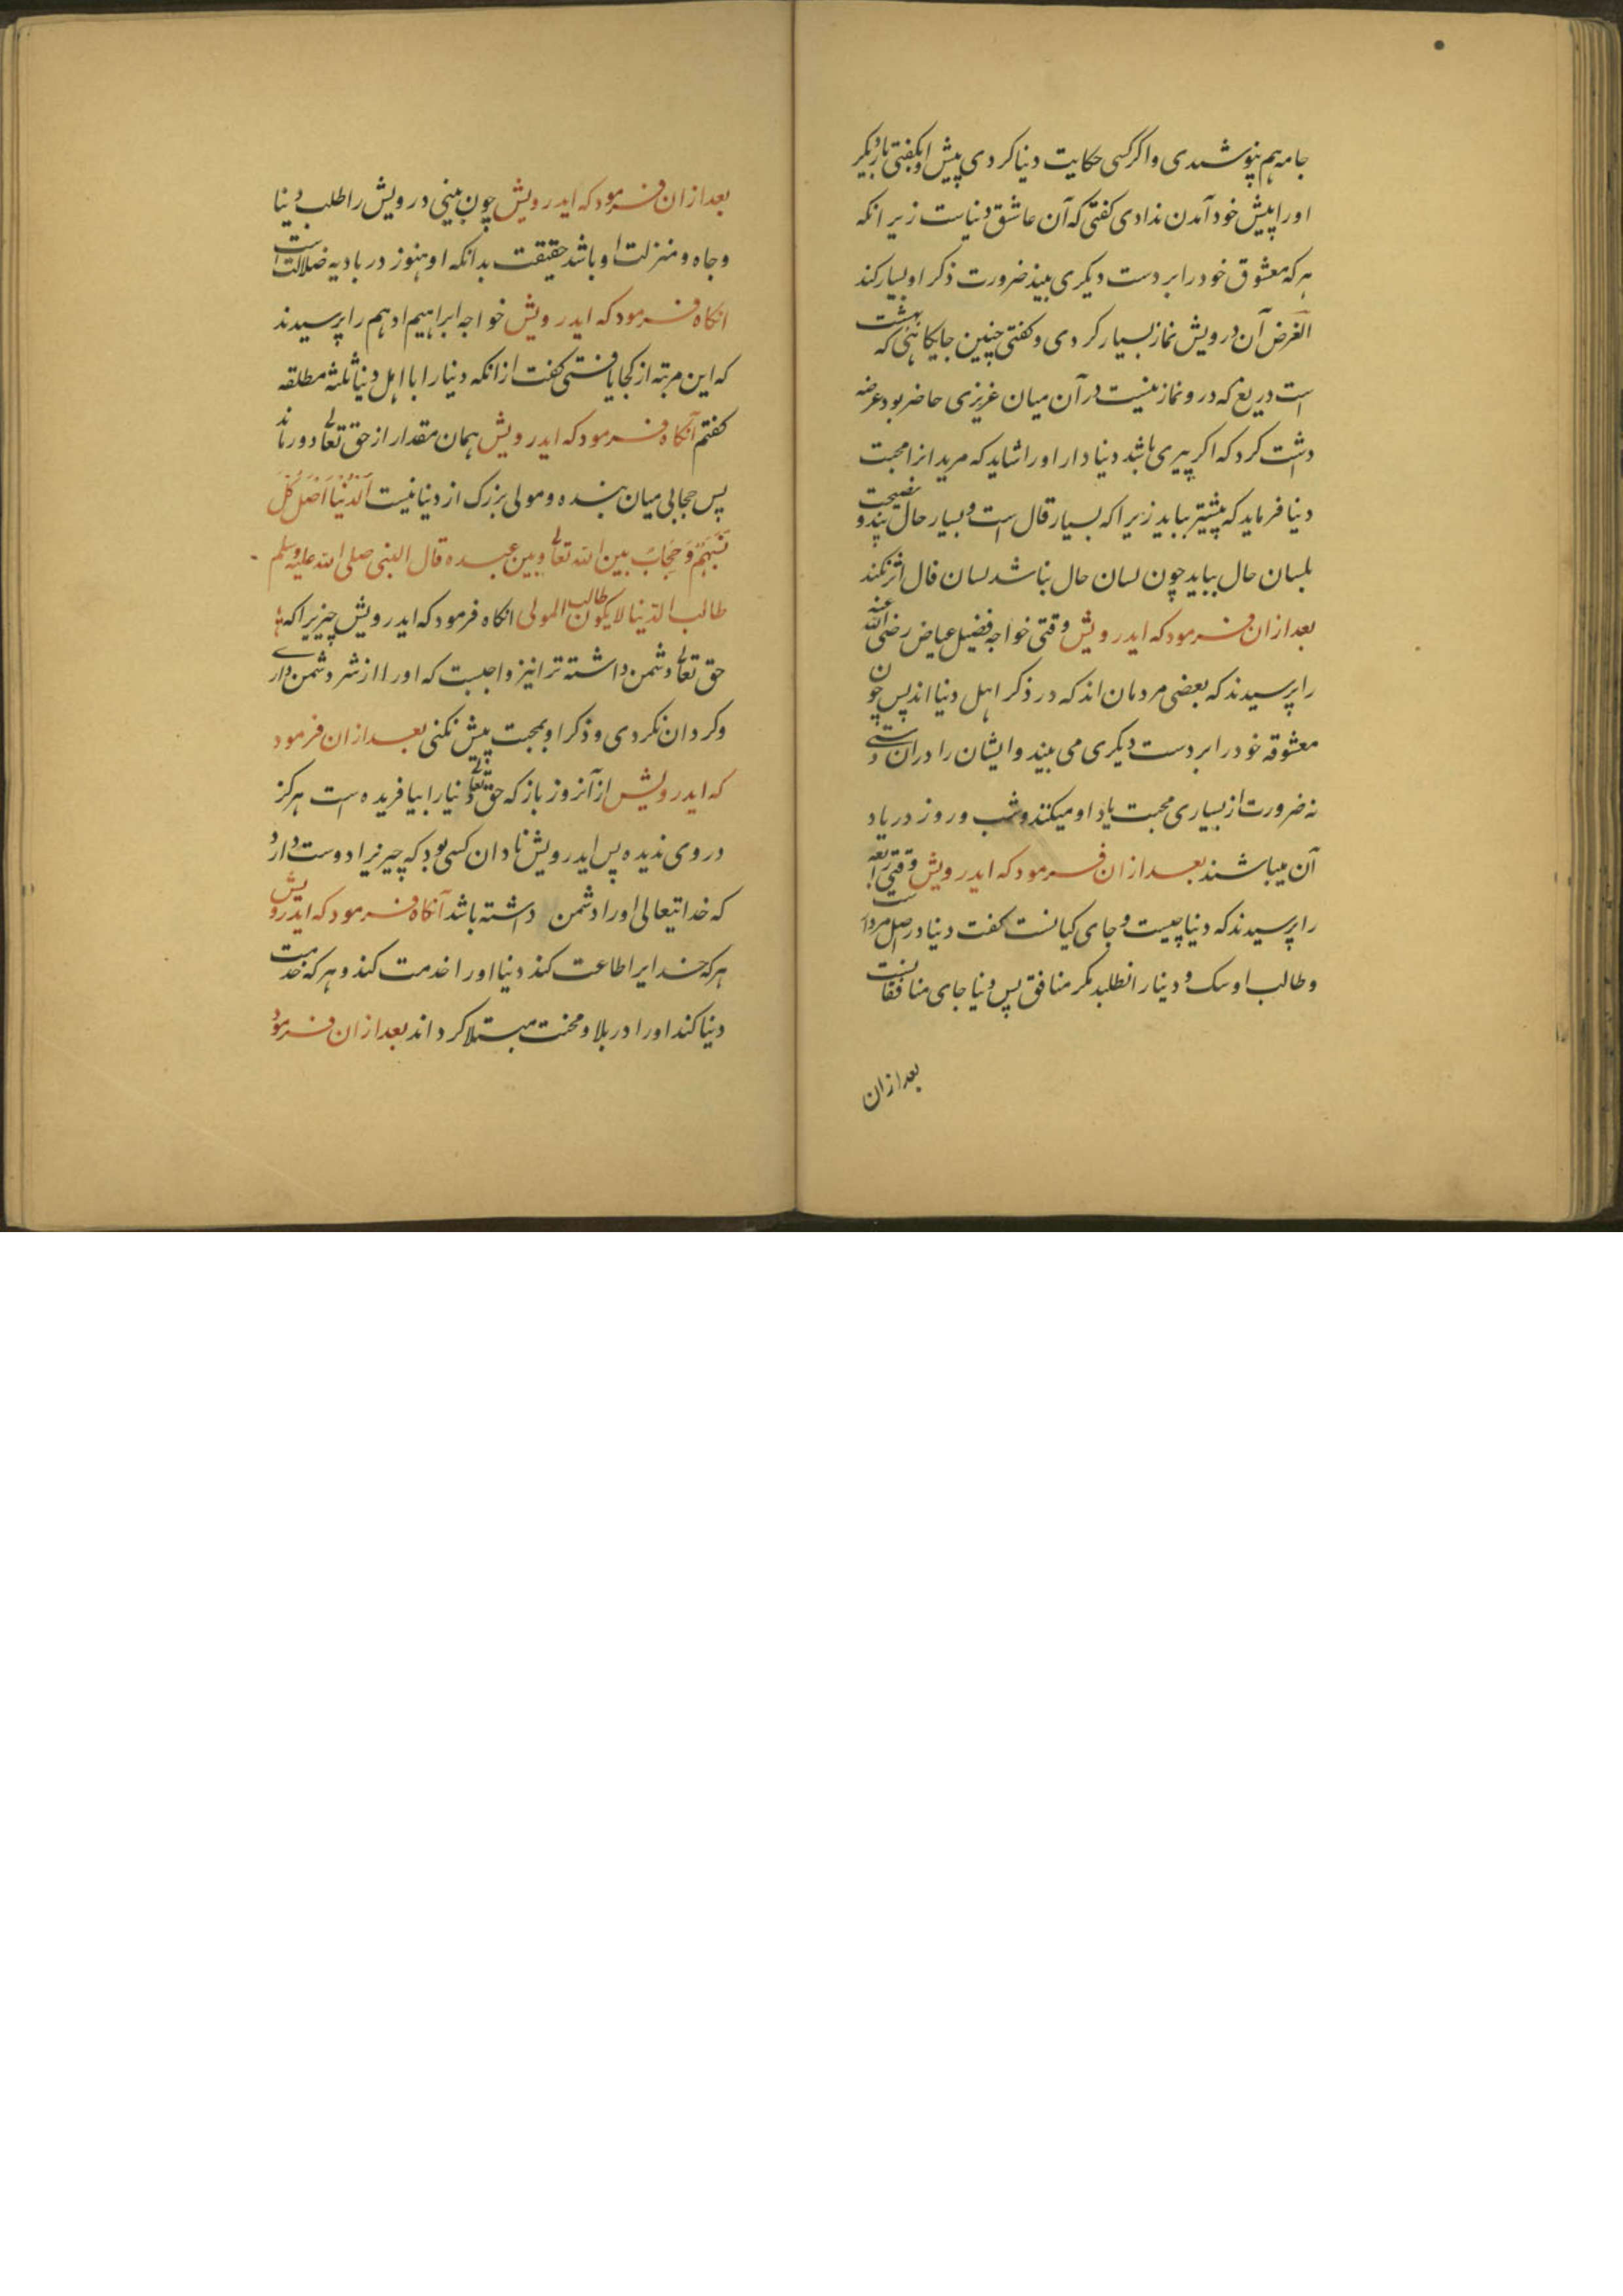 جامه هم نپوشیدی و اگر کسی حکایت دنیا کردی پیش او نگفتی بار دیگر
او را پیش خود آمدن ندادی گفتی که آن عاشق دنیاست زیرانکه
هر که معشوق خود را بر دست دیگری بیند ضرورت ذکر او بسیار کند
الغرض آن درویش نماز بسیار کردی و گفتی چنین جایگاهی که بهشت
است دریغ که درو نماز نیست در آن میان عزیزی حاضر بود عرضه
داشت کرد که اگر پیری باشد دنیادار او را شاید که مریدانرا محبت
دنیا فرماید که پیشتر بباید زیرا که بسیار قال است و بسیار حال پند و نصیحت
بلسان حال بباید چون لسان حال نباشد لسان قال اثر نکند
بعد ازان فرمود که ایدرویش وقتی خواجه فضیل عیاض رضی الله عنه
را پرسیدند که بعضی مردمان اند که در ذکر اهل دنیا اند پس چون
معشوقه خود را بر دست دیگری می بیند و ایشان را دران دستی
نه ضرورت از بسیاری محبت یاد او میکنند و شب و روز در یاد
آن میباشند بعد ازان فرمود که ایدرویش وقتی رابعه
را پرسیدند که دنیا چیست و جای کیانست گفت دنیا در اصل مردارست
و طالب او سگ و دنیا را نطلبد مگر منافق پس دنیا جای منافقانست
بعد ازان
بعد ازان فرمود که ایدرویش چون بینی درویش را طلب دنیا
و جاه و منزلت او باشد حقیقت بدانکه او هنوز در بادیه ضلالت است
انگاه فرمود که ایدرویش خواجه ابراهیم ادهم را پرسیدند
که این مرتبه از کجا یافتی گفت ازانکه دنیا را با اهل دنیا ثلثه مطلقه
گفتم آنگاه فرمود که ایدرویش همان مقدار از حق تعالی دور ماند
پس حجابی میان بنده و مولی بزرگ از دنیا نیست اَلدُّنْیَا اَصْلُ کُلِّ
وَحِجَابٌ بین الله تعالی و بین عبده قال النبی صلی الله علیه وسلم
طالب الدنیا لا یکون طالب المولی انگاه فرمود که ایدرویش چیزیرا که
حق تعالی دشمن داشته ترا نیز واجبست که او را از شر دشمن داری
و گردان نگردی و ذکر او بمحبت پیش نکنی بعد ازان فرمود
که ایدرویش از آنروز باز که حق تعالی دنیا را بیافریده است هرگز
در وی ندیده پس ایدرویش نادان کسی بود که چیزیرا دوست دارد
که خدایتعالی او را دشمن داشته باشد آنگاه فرمود که ایدرویش
هر که خدایرا طاعت کند دنیا او را خدمت کند و هر که خدمت
دنیا کند او را در بلا و محنت مبتلا گرداند بعد ازان فرمود